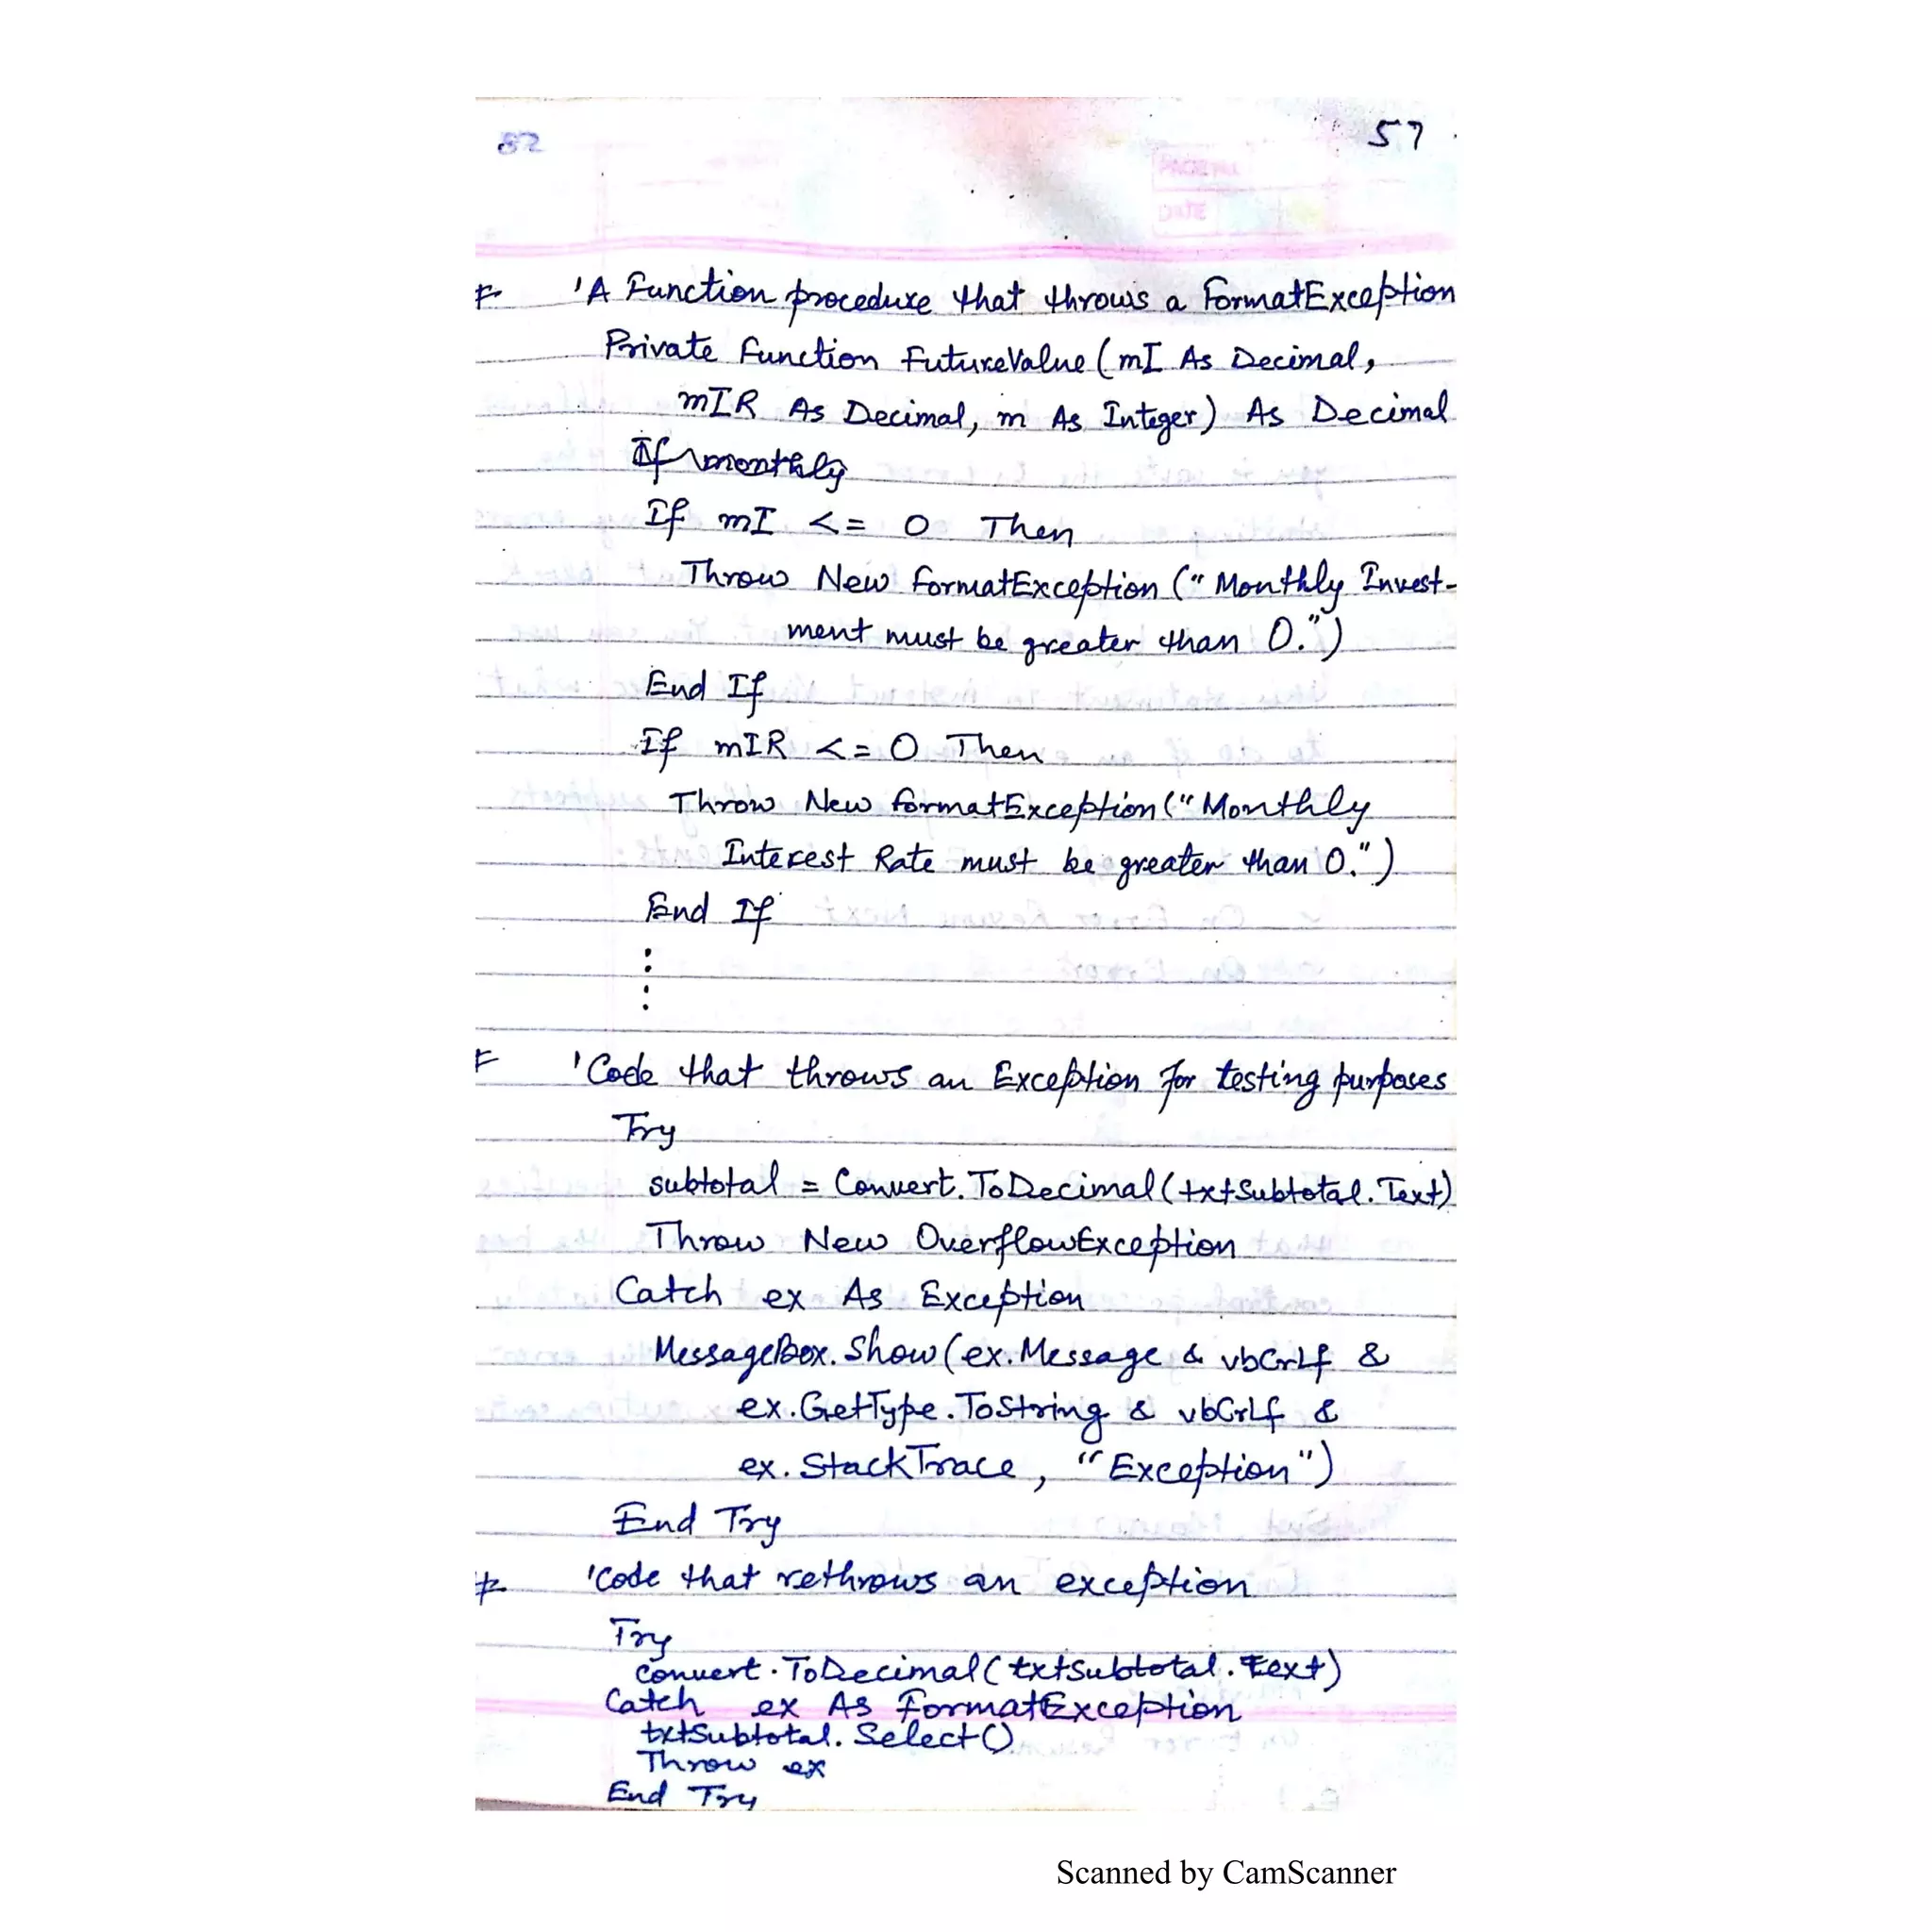 57
'A Function procedure that throws a FormatException
Private Function FutureValue (mI As Decimal,
mIR As Decimal, m As Integer) As Decimal
If monthly
If mI <= 0 Then
Throw New FormatException ("Monthly Invest-
ment must be greater than 0.")
End If
If mIR <= 0 Then
Throw New FormatException ("Monthly
Interest Rate must be greater than 0.")
End If
⋮
'Code that throws an Exception for testing purposes
Try
subtotal = Convert.ToDecimal(txtSubtotal.Text)
Throw New OverflowException
Catch ex As Exception
MessageBox.Show(ex.Message & vbCrLf &
ex.GetType.ToString & vbCrLf &
ex.StackTrace, "Exception")
End Try
'Code that rethrows an exception
Try
Convert.ToDecimal(txtSubtotal.Text)
Catch ex As FormatException
txtSubtotal.Select()
Throw ex
End Try
Scanned by CamScanner